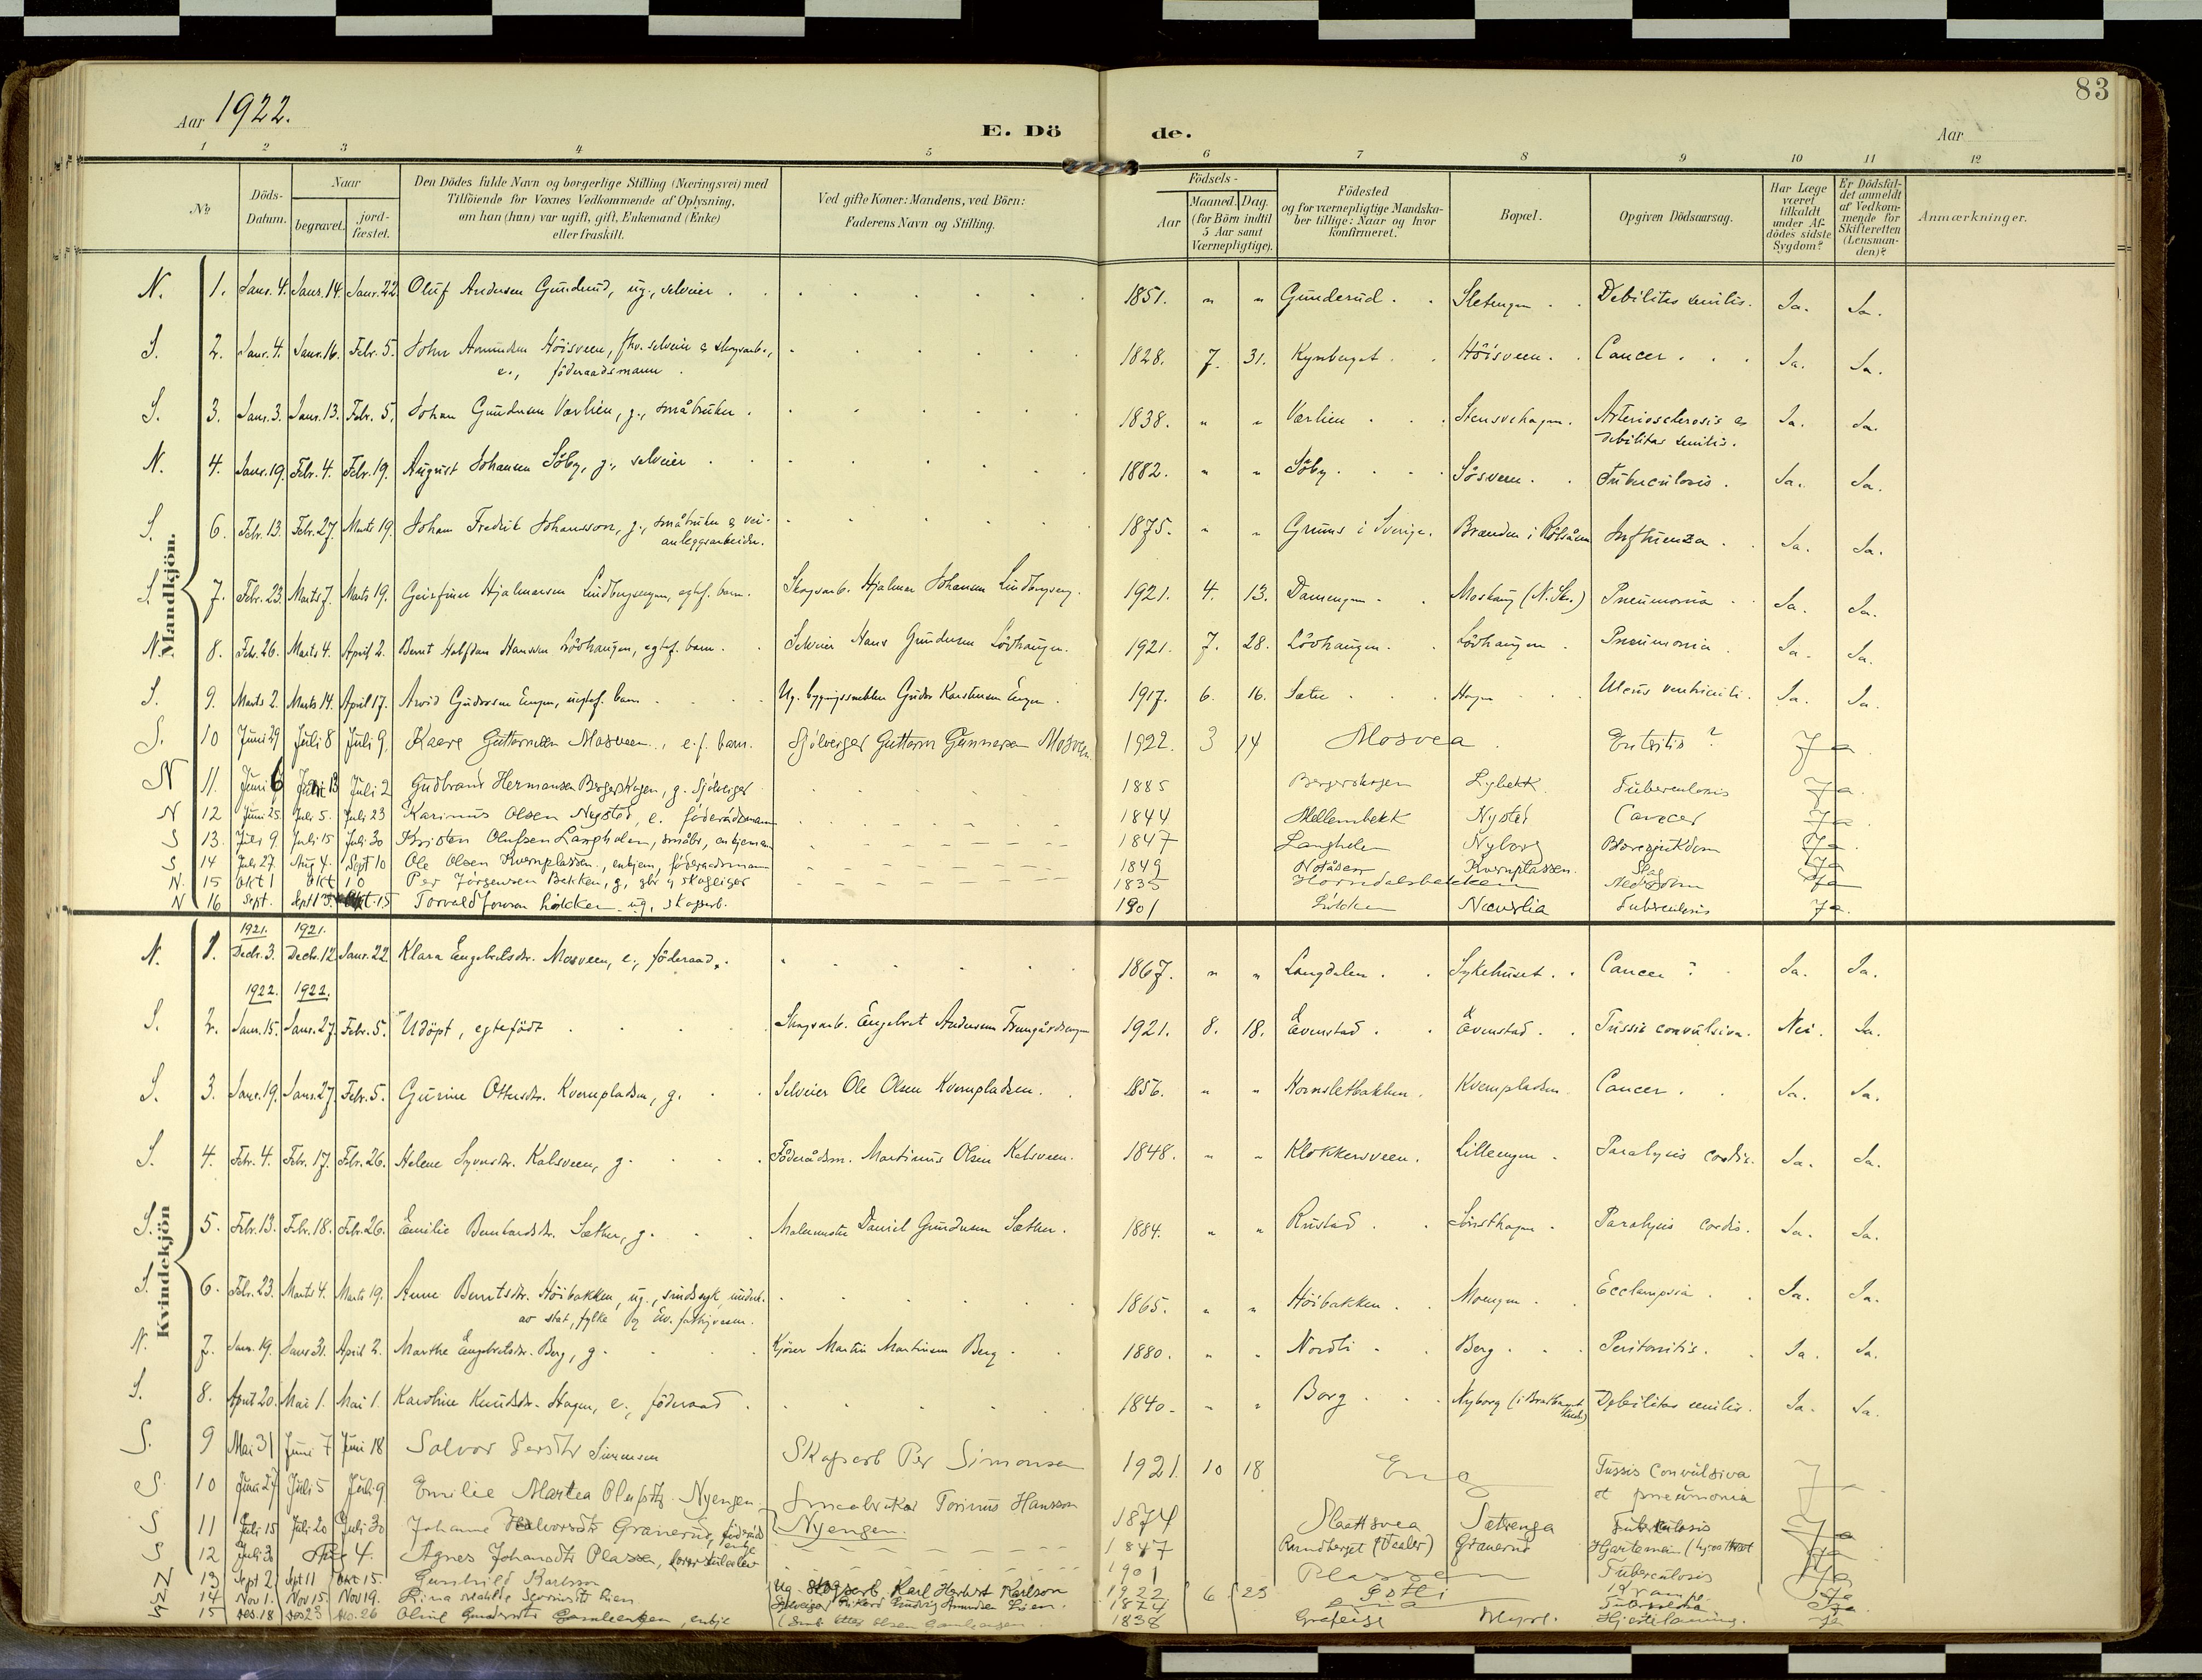 83
Aar 1922.
E. Dö de.
Aar
1 2 3 4 5 6 7 8 9 10 11 12
No.
Döds-Datum.
Naar
begravet.
jord-fæstet.
Den Dödes fulde Navn og borgerlige Stilling (Næringsvei) med
Tilföiende for Voxnes Vedkommende af Oplysning,
om han (hun) var ugift, gift, Enkemand (Enke)
eller fraskilt.
Ved gifte Koner: Mandens, ved Börn:
Faderens Navn og Stilling.
Födsels-
Aar
Maaned. Dag.
(for Börn indtil
5 Aar samt
Værnepligtige).
Födested
og for værnepligtige Mandska-
ber tillige: Naar og hvor
konfirmeret.
Bopæl.
Opgiven Dödsaarsag.
Har Læge
været
tilkaldt
under Af-
dödes sidste
Sygdom?
Er Dödsfal-
det anmeldt
af Vedkom-
mende for
Skifteretten
(Lensman-
den)?
Anmærkninger.
Mandkjön.
N. 1. Janr. 4. Janr. 14. Janr. 22. Oluf Andersen Gunderud, ug., selveier 1851. " " Gunderud. Sletengen Debilitas senilis. Ja. Ja.
S. 2. Janr. 4. Janr. 16. Febr. 5. John Amundsen Höisveen, fhv. selveier & skogsarb., 1828. 7. 31. Kynberget Höisveen. Cancer. Ja. Ja.
e., föderaadsmann.
S. 3. Janr. 3. Janr. 13. Febr. 5. Johan Gundersen Værlien, g., småbruker. 1838. " " Værlien Stensvehagen. Arteriosclerosis &
debilitas senilis. Ja. Ja.
N. 4. Janr. 19. Febr. 4. Febr. 19. August Johansen Söby, g., selveier 1882. " " Söby. Sösveen. Tuberculosis. Ja. Ja.
S. 6. Febr. 13. Febr. 27. Marts 19. Johan Fredrik Johansson, g., småbruker & vei-
anleggsarbeider. 1875. " " Grums i Sverige. Brænden i Influenza. Ja. Ja.
S. 7. Febr. 23. Marts 7. Marts 19. Hjalmarsen Lindbergsengen, egtef. barn. Skogsarb. Hjalmar Johansen Lindbergseng. 1921. 4. 13. Damengen Moskaug (N. Skr.) Pneumonia Ja. Ja.
N. 8. Febr. 26. Marts 4. April 2. Bernt Halfdan Hansen Lövhaugen, egtef. barn. Selveier Hans Gundersen Lövhaugen. 1921. 7. 28. Lövhaugen. Lövhaugen Pneumonia. Ja. Ja.
S. 9. Marts 2. Marts 14. April 17. Arvid Gudorsen Engen, uegtef. barn Ug. bygningssnekker Gudor Karstensen Engen. 1917. 6. 16. Sæter Hagen Ulcus ventriculi. Ja. Ja.
S. 10 Juni 29 Juli 8 Juli 9. Kaare Guttormsen Mosveen, e.f. barn. Sjölveiger Guttorm Gunnarsen Mosveen 1922 3 14 Mosvea Entritis? Ja
N 11. Juni 6 Juni 13 Juli 2 Gudbrand Hermansen Bergerskogen, g. sjölveiger 1885 Bergerskogen Lybekk Tuberculosis Ja
N 12 Juni 25. Juli 5. Juli 23 Karinus Olsen Nysted, e. föderådsmann 1844 Mellembekk Nysted Cancer Ja
S 13. Juli 9. Juli 15 Juli 30 Kristen Olufsen Langholen, småbr., enkjemann 1847 Langholen Nyborg Blæresjukdom Ja
S 14 Juli 27. Aug 4. Sept 10 Ole Olsen Kvernplassen, enkjem, föderaadsmann 1849 Notåsen Kvernplassen. Slag Ja
N. 15 Okt 1 Okt 10 Per Jörgensen Bekken, g, gbr og skogeiger 1835 Horndalsbekken Ja
N 16 Sept. Sept 13. Okt 15 Torvald Lökken ug. skogsarb. 1901 Lökken Næverlia Tuberculosis Ja.
Kvindekjön
1921. 1921.
N. 1. Decbr. 3. Decbr. 12. Janr. 22. Klara Engebretsdtr. Mosveen, e., föderaad. 1867. " " Langdalen. Sykehuset. Cancer? Ja. Ja.
1922. 1922.
S. 2. Janr. 15. Janr. 27. Febr. 5. Udöpt, egtefödt Skogsarb. Engebret Andersen 1921. 8. 18. Evenstad. Evenstad. Tussis convulsiva. Nei. Ja.
S. 3. Janr. 19. Janr. 27. Febr. 5. Gurine Ottersdtr. Kvernpladsen, g. Selveier Ole Olsen Kvernpladsen. 1856. " " Hornsletbakken. Kvernpladsen Cancer. Ja. Ja.
S. 4. Febr. 4. Febr. 17. Febr. 26. Helene Syversdtr. Kalsveen, g. Föderådsm. Martinus Olsen Kalsveen. 1848. " " Klokkersveen. Lillengen Paralysis cordis. Ja. Ja.
S. 5. Febr. 13. Febr. 18. Febr. 26. Emilie Bernhardsdtr. Sæther, g. Malermester Daniel Gundersen Sæther. 1884. " " Rustad Paralysis cordis. Ja. Ja.
S. 6. Febr. 23. Marts 4. Marts 19. Anne Berntsdtr. Höibakken, ug., sindssyk, underh.
av stat, fylke og Elv. fattigvesen. 1865. " " Höibakken. Moengen Ecclampsia. Ja. Ja.
N. 7. Janr. 19. Janr. 31. April 2. Marthe Engebretsdtr. Berg, g. Kjører Martin Martinsen Berg 1880. " " Nordli Berg. Peritonitis. Ja. Ja.
S. 8. April 20. Mai 1. Mai 1. Karoline Knudsdtr. Hagen, e., föderaad 1840. " " Borg Nyborg Debilitas senilis. Ja. Ja.
S. 9 Mai 31 Juni 7 Juni 18 Solvor Persdtr Simonsen Skogsarb Per Simonsen 1921 10 18 Eng Tussis Convulsiva
et pneumonia Ja
S 10 Juni 27 Juli 5 Juli 9 Emilie Martea Olufsdtr. Nyengen Smaabruker Torinus Hansson
Nyengen. 1874 Slaattsvea Sætrenga Tuberkulosis Ja
S 11 Juli 15 Juli 20 Juli 30 Johanne Halvorsdtr Granerud, föderåd
enkje 1847 Rundberget (Vaaler) Granerud Ja
S 12 Juli 30 Aug 4. Agnes Johansdtr Plassen, 1901 Plassen Tuberculosis Ja
N 13 Sept 2 Sept 11 Okt 15. Gunhild Karlsson Ug. skogsarb. Karl Herbert Karlson 1922 6 23 Gotli Kram Ja
14 Nov 1. Nov 15. Nov 19. Lien Lien. 1874 Ja
15 Des. 18 Des 23 Des. 26 Oline enkje 1838 Myrl. Ja